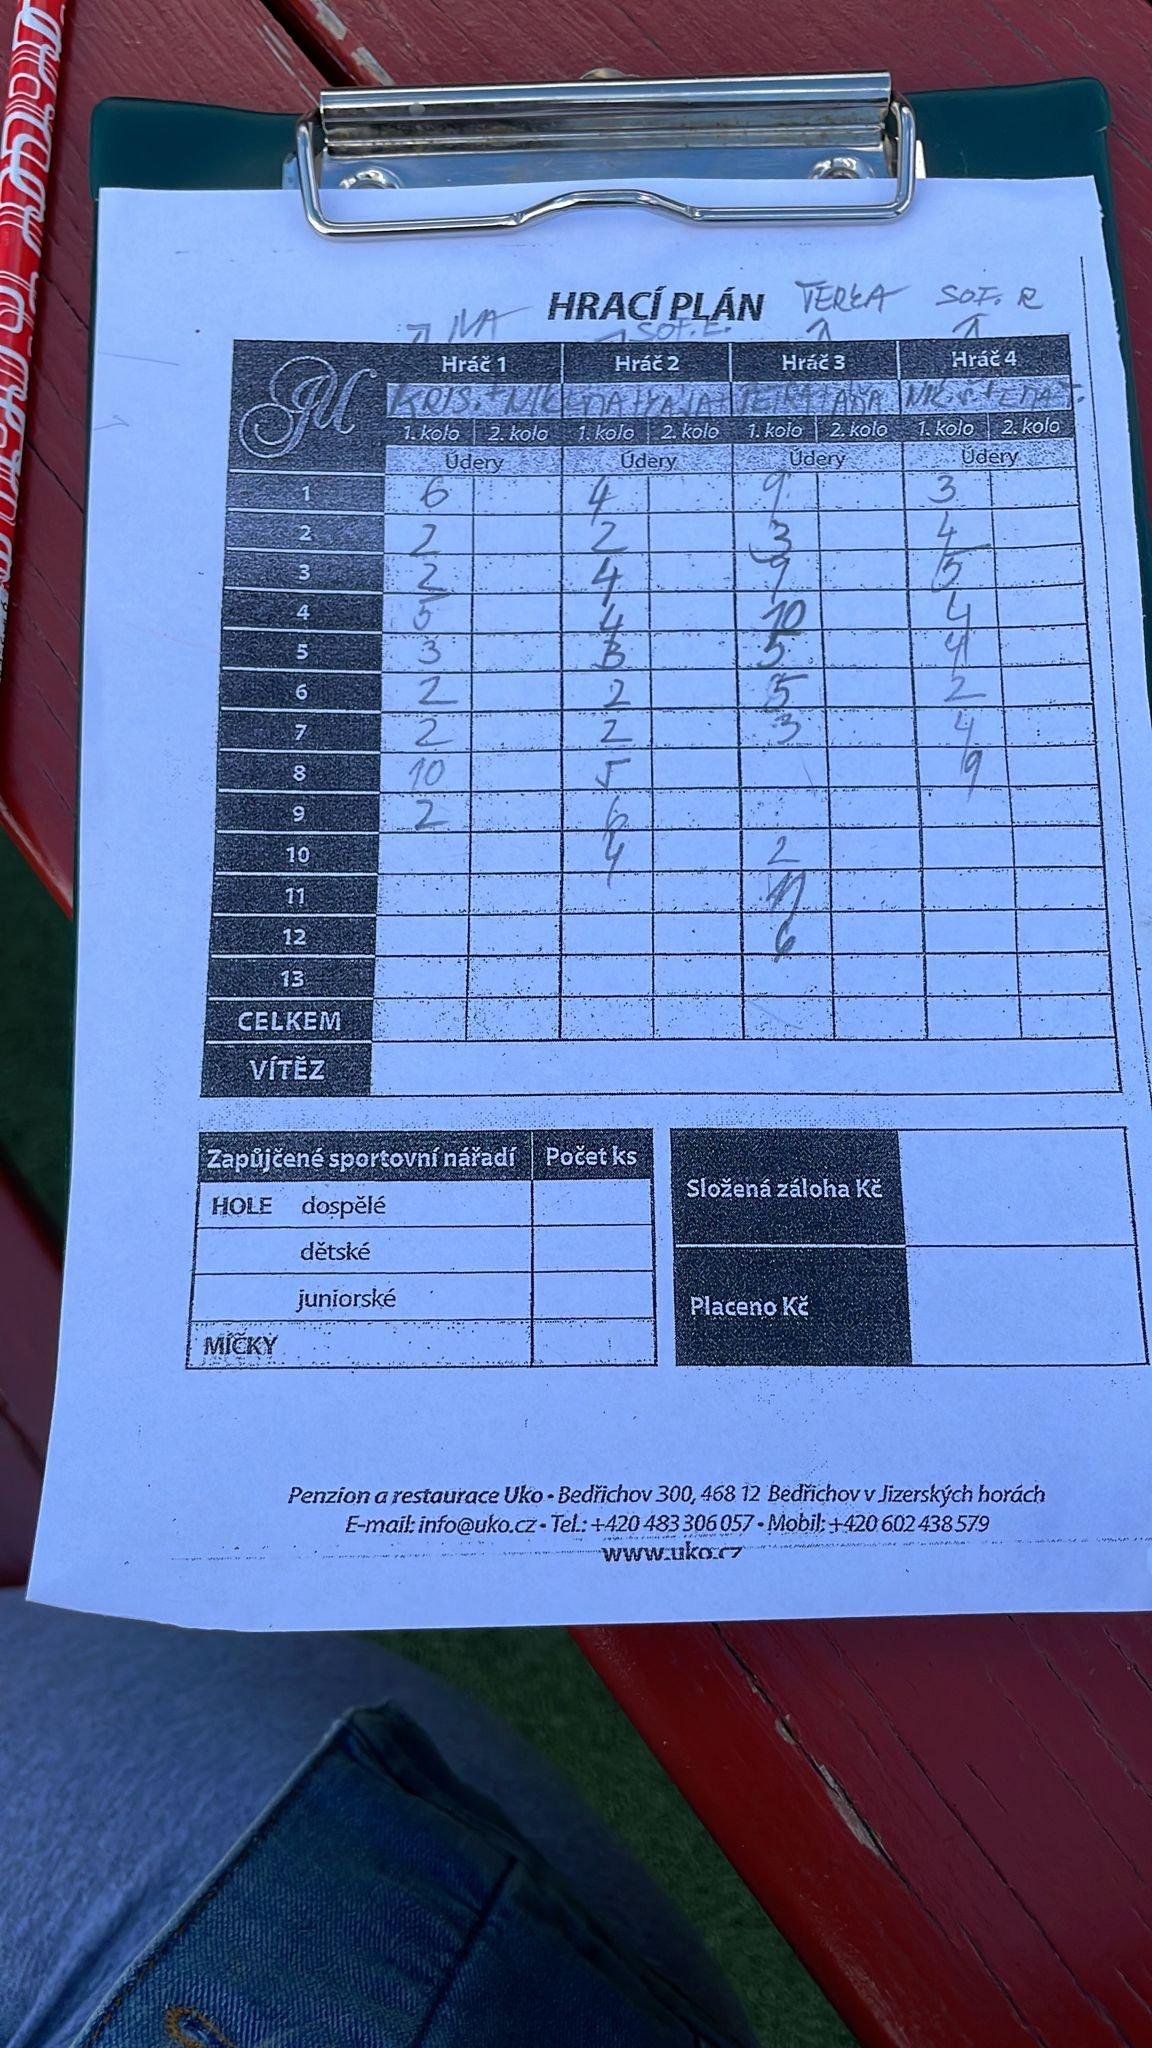 HRACÍ PLÁN TERKA SOF. R
IVA SOF. E.
Hráč 1 Hráč 2 Hráč 3 Hráč 4
KRIS. + NIK
1. kolo 2. kolo 1. kolo 2. kolo 1. kolo 2. kolo 1. kolo 2. kolo
Údery Údery Údery Údery
1 6 4 9 3
2 2 2 3 4
3 2 4 9 5
4 5 4 10 4
5 3 3 5 4
6 2 2 5 2
7 2 2 3 4
8 10 5 9
9 2 6
10 4 2
11
12 6
13
CELKEM
VÍTĚZ
Zapůjčené sportovní nářadí Počet ks
HOLE dospělé
dětské
juniorské
MÍČKY
Složená záloha Kč
Placeno Kč
Penzion a restaurace Uko • Bedřichov 300, 468 12 Bedřichov v Jizerských horách
E-mail: info@uko.cz • Tel.: +420 483 306 057 • Mobil: +420 602 438 579
www.uko.cz